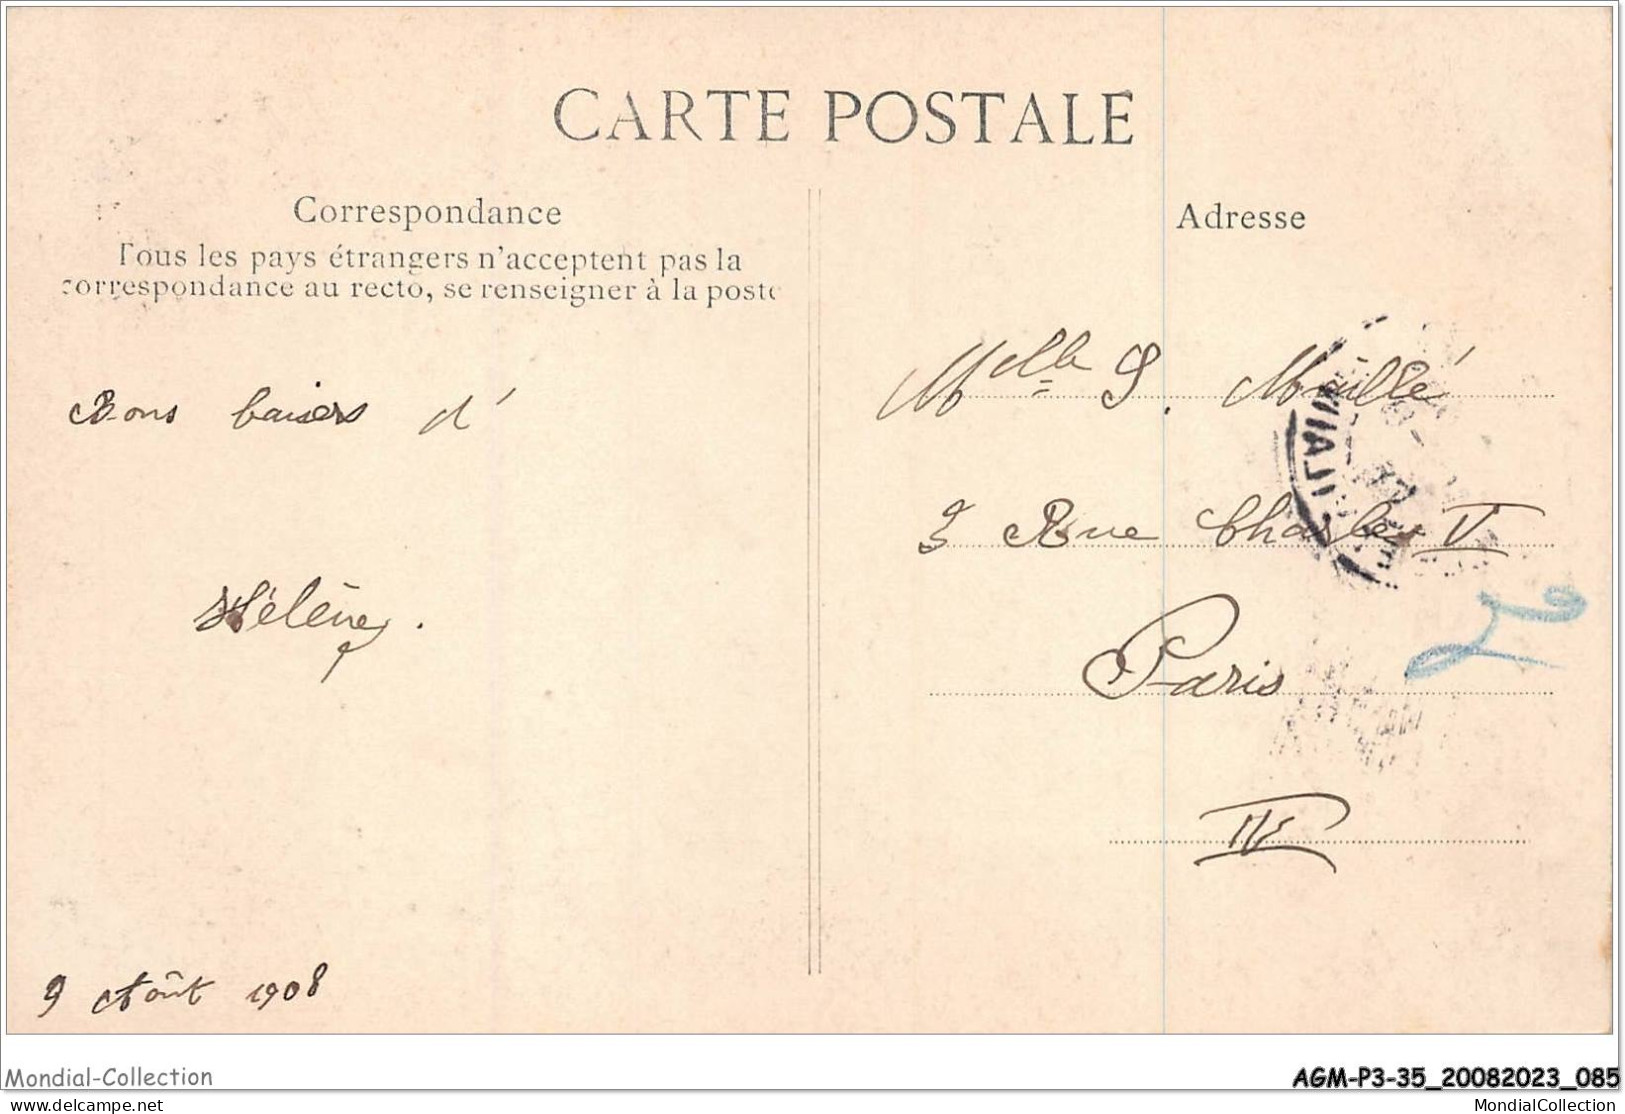 CARTE POSTALE
Correspondance
Tous les pays étrangers n'acceptent pas la
correspondance au recto, se renseigner à la poste
Bons baisers d'
Hélène.
9 Août 1908
Adresse
Melle S. Maillé
3 Rue Charles V
Paris
IVE
Mondial-Collection
AGM-P3-35_20082023_085
delcampe.net
MondialCollection